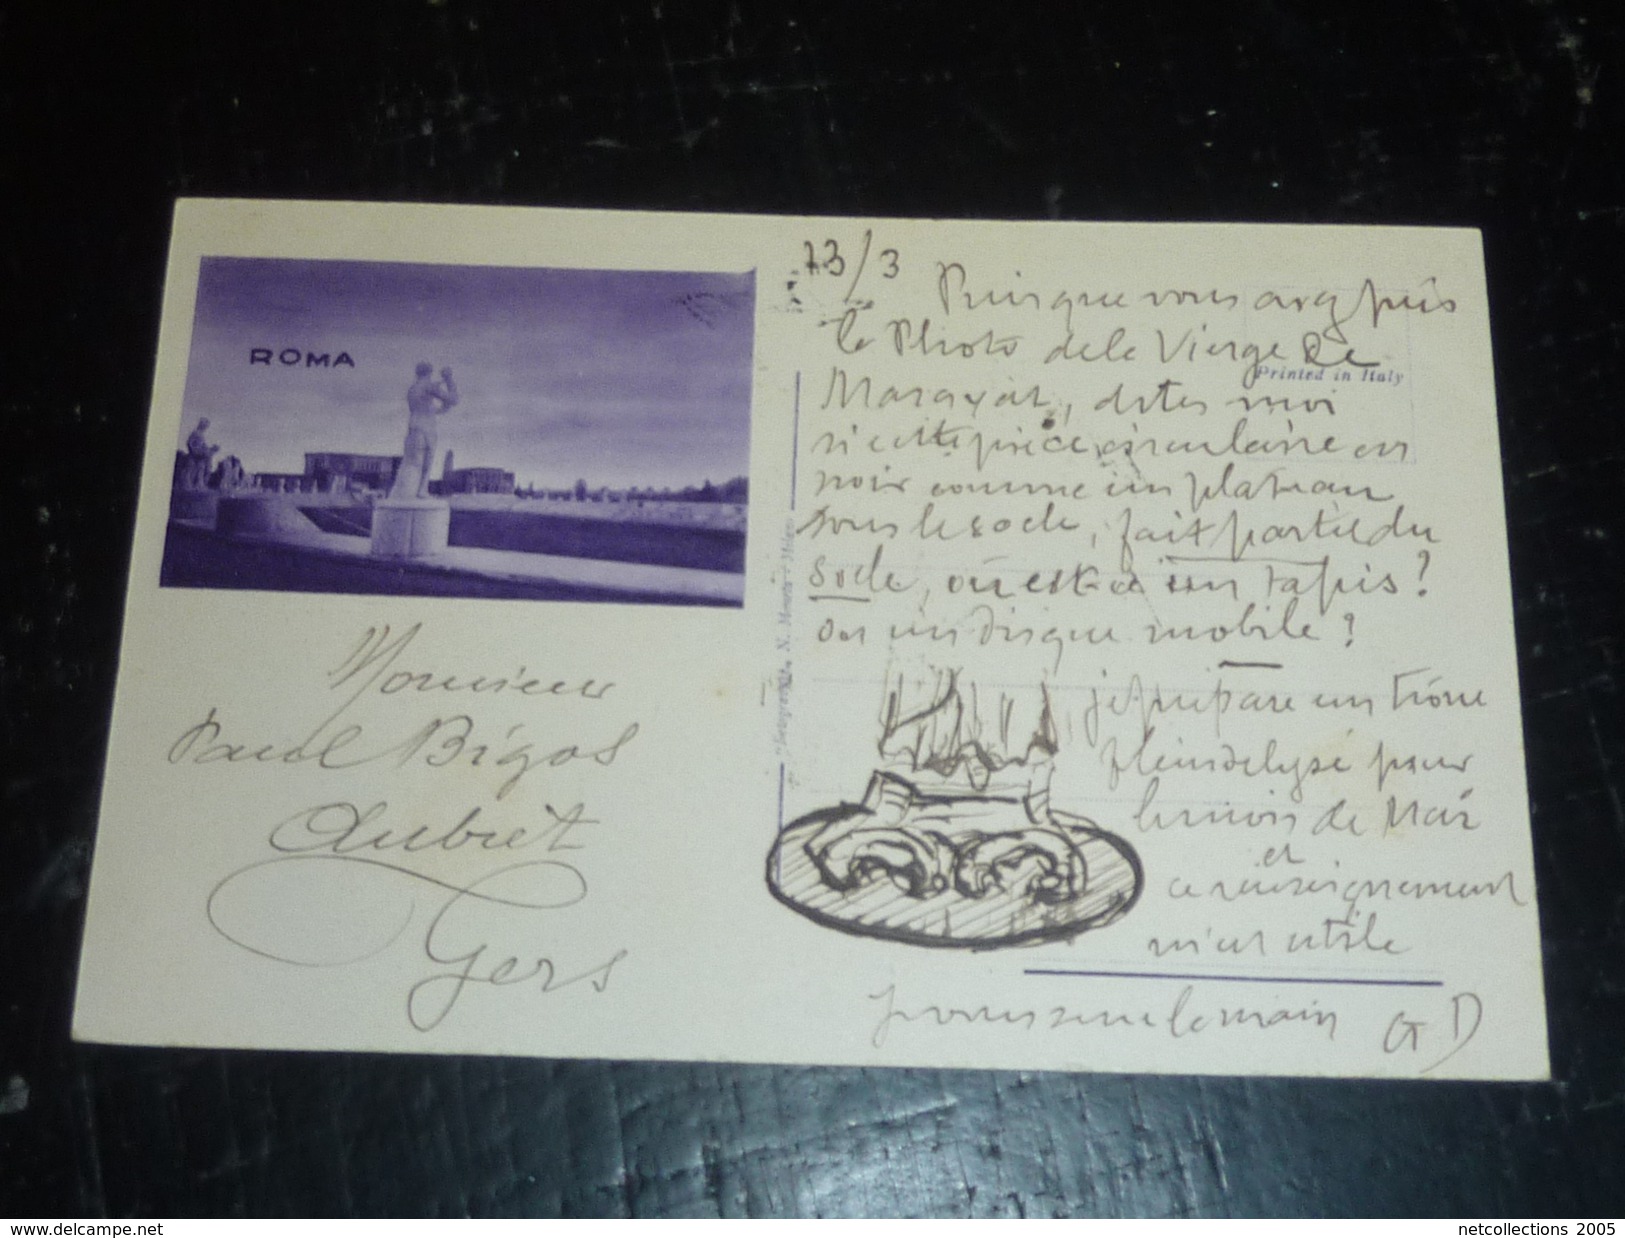 ROMA
13/3 Puisque vous avez pris
la Photo de la Vierge de
Printed in Italy
Maravat, dites moi
si cette pièce circulaire en
noir comme un plateau
sous le socle, fait partie du
socle, où est-ce un tapis?
ou un disque mobile?
je prépare un trône
plein d'elysé pour
le mois de Mai
et
ce renseignement
m'est utile
je vous serre la main GD
Monsieur
Paul Bigos
Aubiet
Gers
www.delcampe.net
netcollections 2005